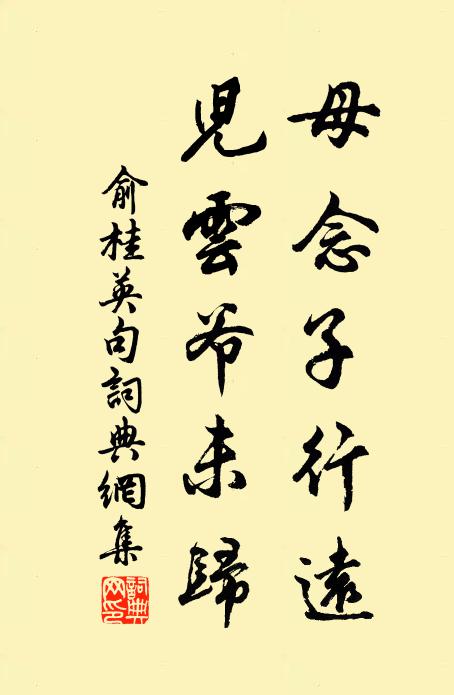 母念子行遠
兒雲爷未歸
俞桂英句詞典網集
詞典網印